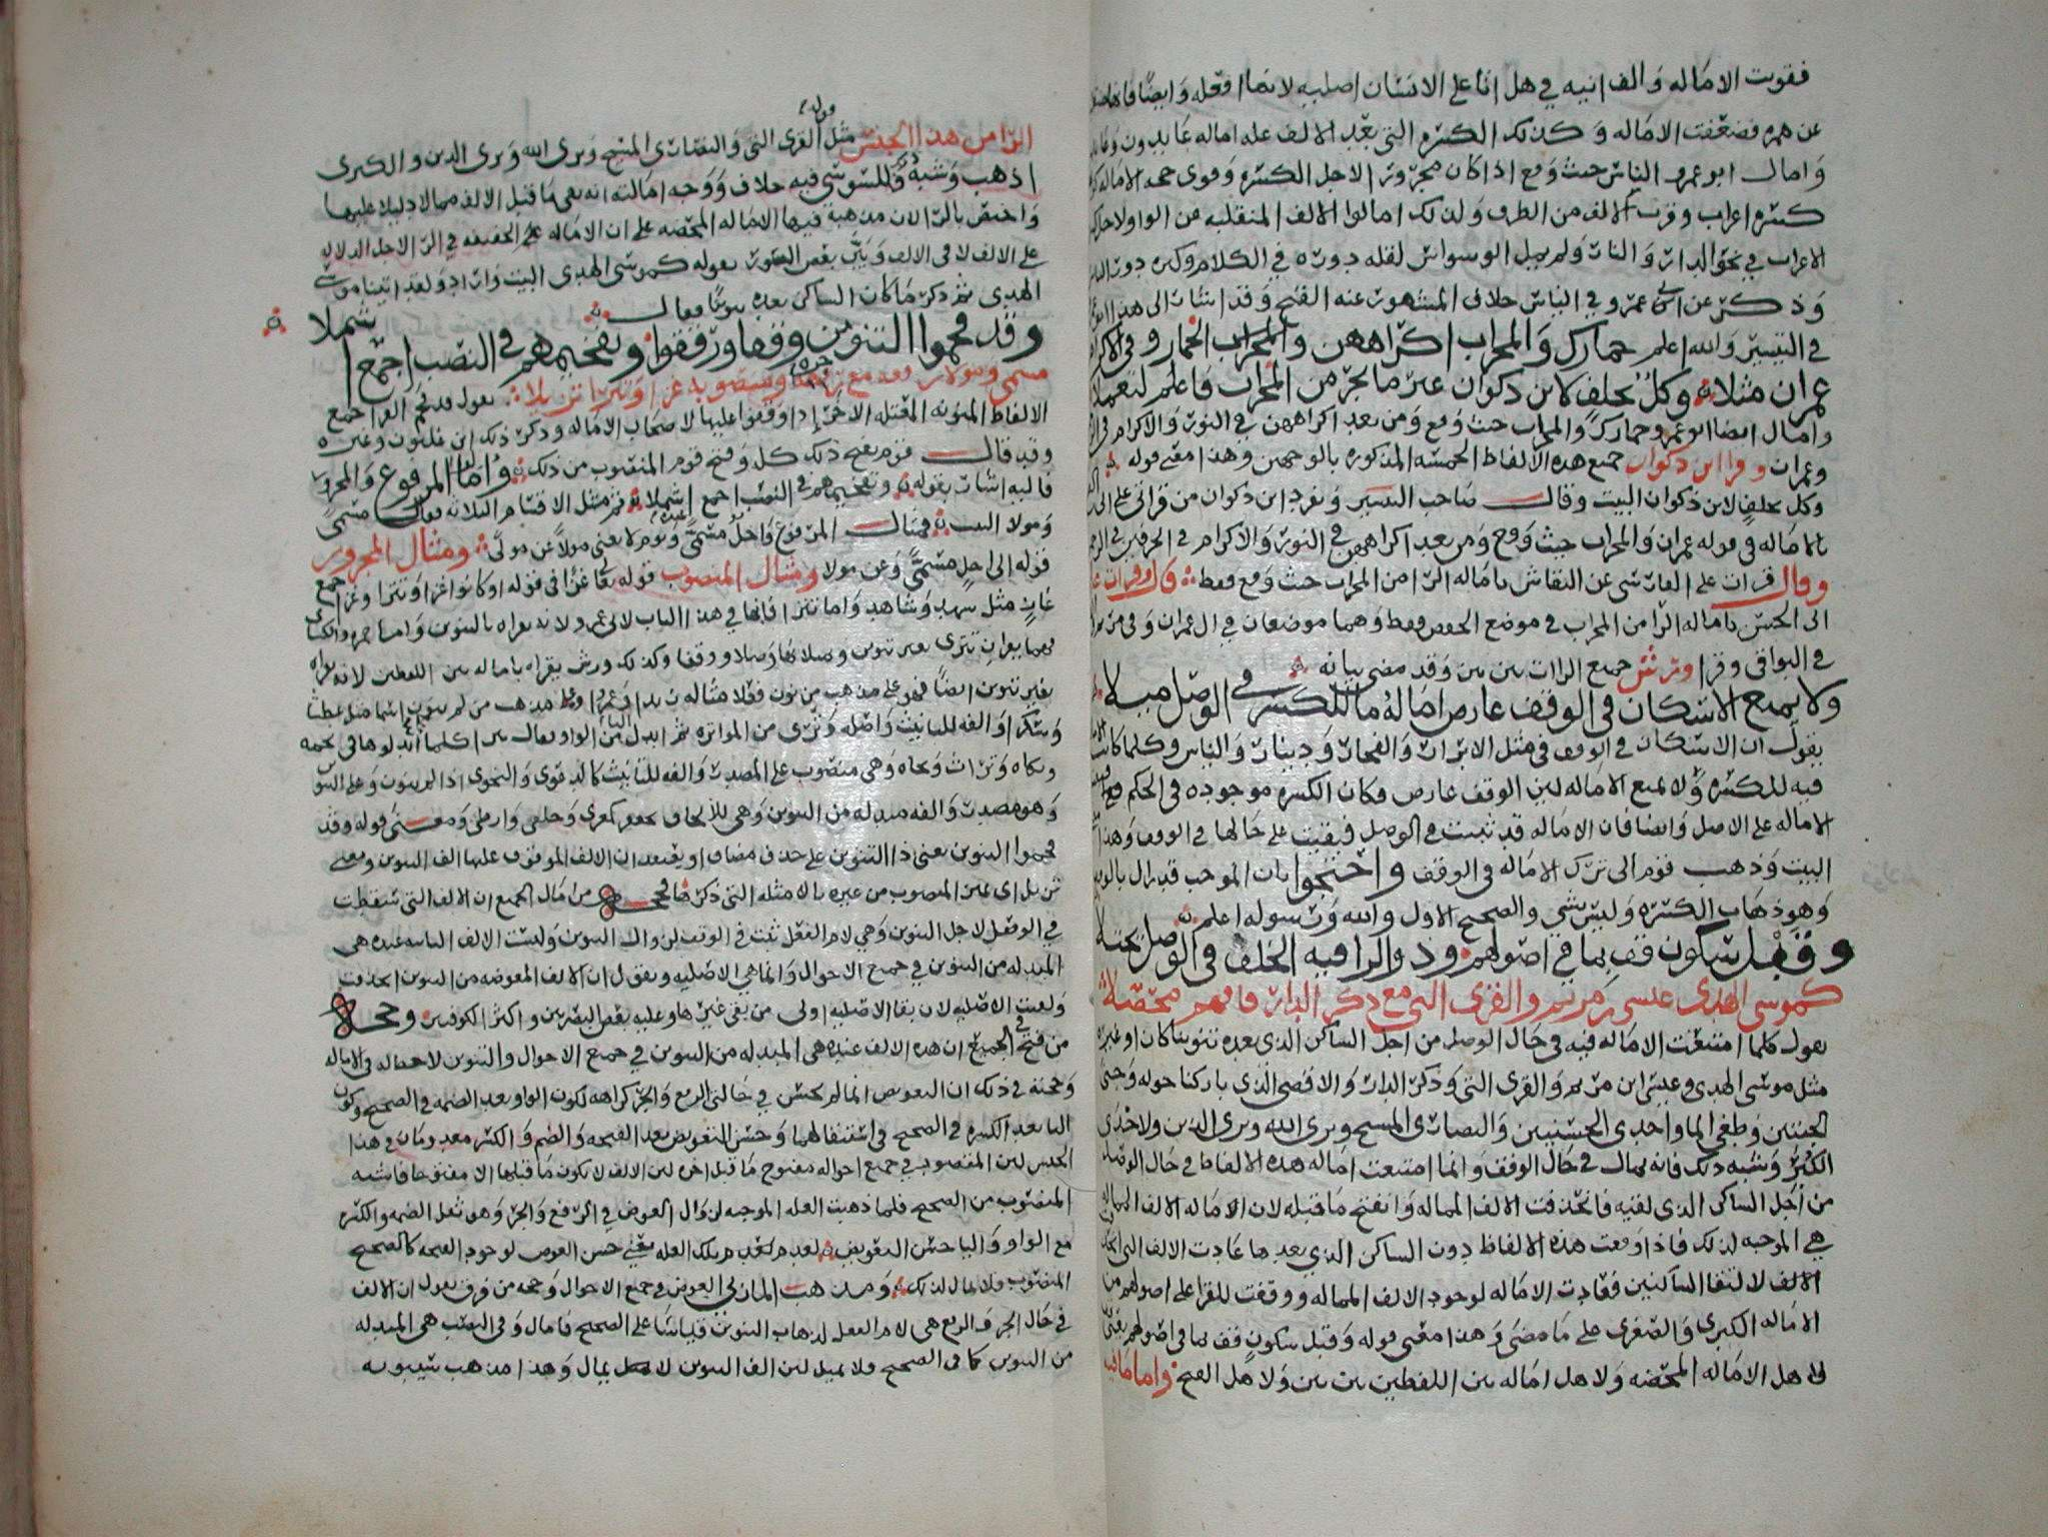 فقويت الاماله والف انيه في هل اتا على الانسان اصليه لانها افعله وايضا فانها
عن همزه فضعفت الاماله وكذلك الكسره التي بعد الالف عله اماله عابدون
وامال ابو عمرو الناس حيث وقع اذا كان مجرورا لاجل الكسره وقوى حجه الاماله
كسره اعراب وقرب الالف من الطرف ولذلك امالوا الالف المنقلبه من الواو
الاعراب في نحو الدار والنار ولم يمل الوسواس لقله دوره في الكلام وكثره دور
وذكر عن ابي عمرو في الناس خلاف المشهور عنه الفتح وقد اشار الى هذا
في التيسير والله اعلم حمارك والمحراب اكراههن والمحراب الحمار وفي الاكرام
عمران مثلا وكل بخلف لابن ذكوان غير ما يجر من المحراب فاعلم لتعملا
وامال ايضا ابو عمرو حمارك والمحراب حيث وقع ومن بعد اكراههن في النور والاكرام
وعمران وقرا ابن ذكوان جميع هذه الالفاظ الخمسه المذكوره بالوجهين وهذا معنى قوله
وكل بخلف لابن ذكوان البيت وقال صاحب التيسير وتفرد ابن ذكوان من قراتي على
بالاماله في قوله عمران والمحراب حيث وقع ومن بعد اكراههن في النور والاكرام في الحرفين في الرحمن
وقال قرات على الفارسي عن النقاش باماله الرا من المحراب حيث وقع فقط قال وقرات على
ابي الحسن باماله الرا من المحراب في موضع الخفض فقط وهما موضعان في ال عمران وفي مريم
في البواقي وقرا ورش جميع الرات بين بين وقد مضى بيانه
ولا يمنع الاسكان في الوقف عارضا اماله ما للكسر في الوصل ميلا
يقول ان الاسكان في الوقف في مثل الابرار والفجار ودينار والناس وكلما كانت
فيه للكسره ولا يمنع الاماله لان الوقف عارض فكان الكسره موجوده في الحكم
الاماله على الاصل وايضا فان الاماله قد ثبتت في الوصل فبقيت على حالها في الوقف وهذا
البيت وذهب قوم الى ترك الاماله في الوقف واحتجوا بان الموجب قد زال بالوقف
وهو ذهاب الكسره وليس بشي والصحيح الاول والله ورسوله اعلم
وقبل سكون قف بما في اصولهم وذو الرا فيه الخلف في الوصل يجتلا
كموسى الهدى عيسى بن مريم والقرى التي مع ذكرى الدار فافهم محصلا
يقول كلما امتنعت الاماله فيه في حال الوصل من اجل الساكن الذي بعده تنوينا كان او غيره
مثل موسى الهدى وعيسى ابن مريم والقرى التي وذكرى الدار والاقصى الذي باركنا حوله وجنى
الجنتين وطغى الما واحدى الحسنيين والنصارى المسيح ويرى الله ويرى الذين ولاحدى
الكبر وشبه ذلك فانه يمال في حال الوقف وانما امتنعت اماله هذه الالفاظ في حال الوصل
من اجل الساكن الذي لقيه فانحذفت الالف المماله وانفتح ما قبله لان الاماله الالف المماله
هي الموجبه لذلك فاذا وقعت هذه الالفاظ دون الساكن الذي بعدها عادت الالف التي
الالف لالتقا الساكنين فعادت الاماله لوجود الالف المماله ووقفت للقرا على اصولهم من
الاماله الكبرى والصغرى على ما مضى وهذا معنى قوله وقبل سكون قف بما في اصولهم يعني
لاهل الاماله المحضه ولاهل اماله بين اللفظين بين بين ولاهل الفتح واما ما فيه
الرا من هذا الجنس مثل قوله القرى التي والنصارى المسيح ويرى الله ويرى الذين والكبرى
اذهب وشبه ذلك وللسوسي فيه خلاف ووجه امالته انه بقى ما قبل الالف ممالا دليلا عليها
واختص بالرا لان مذهبه فيها الاماله المحضه على ان الاماله على الحقيقه في الرا لاجل الدلاله
على الالف لا في الالف وبين بعض الصور بقوله كموسى الهدى البيت واراد ولقد اتينا موسى
الهدى ثم ذكر ما كان الساكن بعده تنوينا فقال
وقد فخموا التنوين وقفا ورققوا وتفخيمهم في النصب اجمع اشملا
مسمى ومولى رفعه مع جره ومنصوبه غزا وتترا تزيلا يقول قد فخم القرا جميع
الالفاظ المنونه المعتله الاخر اذا وقفوا عليها لاصحاب الاماله وذكر ذلك ابن غلبون وغيره
وقد قال قوم بفتح ذلك كله وفتح قوم المنصوب من ذلك واما المرفوع والمجرور
فاليه اشار بقوله وتفخيمهم في النصب اجمع اشملا ثم مثل الاقسام الثلاثه فقال مسمى
ومولا البيت فمثال المرفوع واجل مسمى عنده ويوم لا يغني مولا عن مولى ومثال المجرور
قوله الى اجل مسمى وعن مولا ومثال المنصوب قوله تعا غزا في قوله او كانوا غزا وتترا وغزا جمع
غاز مثل شهد وشاهد واما تترا فانها في هذا الباب لابي عمرو لانه يقراه بالتنوين واما حمزه والكساي
فهما يقران تترى بغير تنوين ويميلانها وصلا ووقفا وكذلك ورش يقراه باماله بين اللفظين لانه يقراه
بغير تنوين ايضا فهو على مذهب من نون
وسكرا والفه للتانيث واصله وترى من المواتره ثم ابدل التا من الواو فقال تترا كلما ابدلوها في تخمه
وتكاه وتراث وتجاه وهي منصوب على المصدر والفه للتانيث كالدعوى والنجوى اذا لم ينون وعلى التنوين
وهو مصدر والفه مبدله من التنوين وهي للالحاق بجعفر كمعزى وارطى ومعنى قوله وقد
فخموا التنوين يعني ذا التنوين على حذف مضاف او يعتقد ان الالف الموقوف عليها الف التنوين ومعنى
تزيل اي تميز المنصوب من غيره بالامثله التي ذكرها فحجه من امال الجميع ان الالف التي سقطت
في الوصل لاجل التنوين وهي لام الفعل ثبتت في الوقف لزوال التنوين وليست الالف الثابته عنده هي
المبدله من التنوين في جميع الاحوال وانما هي الاصليه ويقول ان الالف المعوضه من التنوين انحذفت
وبقيت الاصليه لان بقا الاصليه اولى من بقى غيرها وعليه بعض البصريين واكثر الكوفيين وحجه
من فتح في الجميع ان هذه الالف عنده هي المبدله من التنوين في جميع الاحوال والتنوين لاحظ له في الاماله
وحجته في ذلك ان التعويض انما لم يحسن في حالتي الرفع والجر كراهه لكون الواو بعد الضمه في الصحيح وكون
اليا بعد الكسره في الصحيح في استثقالهما وحسن التعويض بعد الفتحه والضم والكسر معدومان في هذا
الجنس لان المقصور في جميع احواله مفتوح ما قبل اخره لان الالف لا يكون ما قبلها الا مفتوحا فاشبه
المنصوب من الصحيح فلما ذهبت العله الموجبه لزوال العوض في الرفع والجر وهو ثقل الضمه والكسره
مع الواو واليا حسن التعويض لعدم تلك العله يعني حسن العوض لوجود الفتحه كالصحيح
المنصوب فلا يمال لذلك ومذهب المازني العوض في جميع الاحوال وحجه من فرق يقول ان الالف
في حال الجر والرفع هي لام الفعل لذهاب التنوين قياسا على الصحيح فامال وفي النصب هي المبدله
من التنوين كما في الصحيح فلا يميل لان الف التنوين لا يمال وهذا مذهب سيبويه